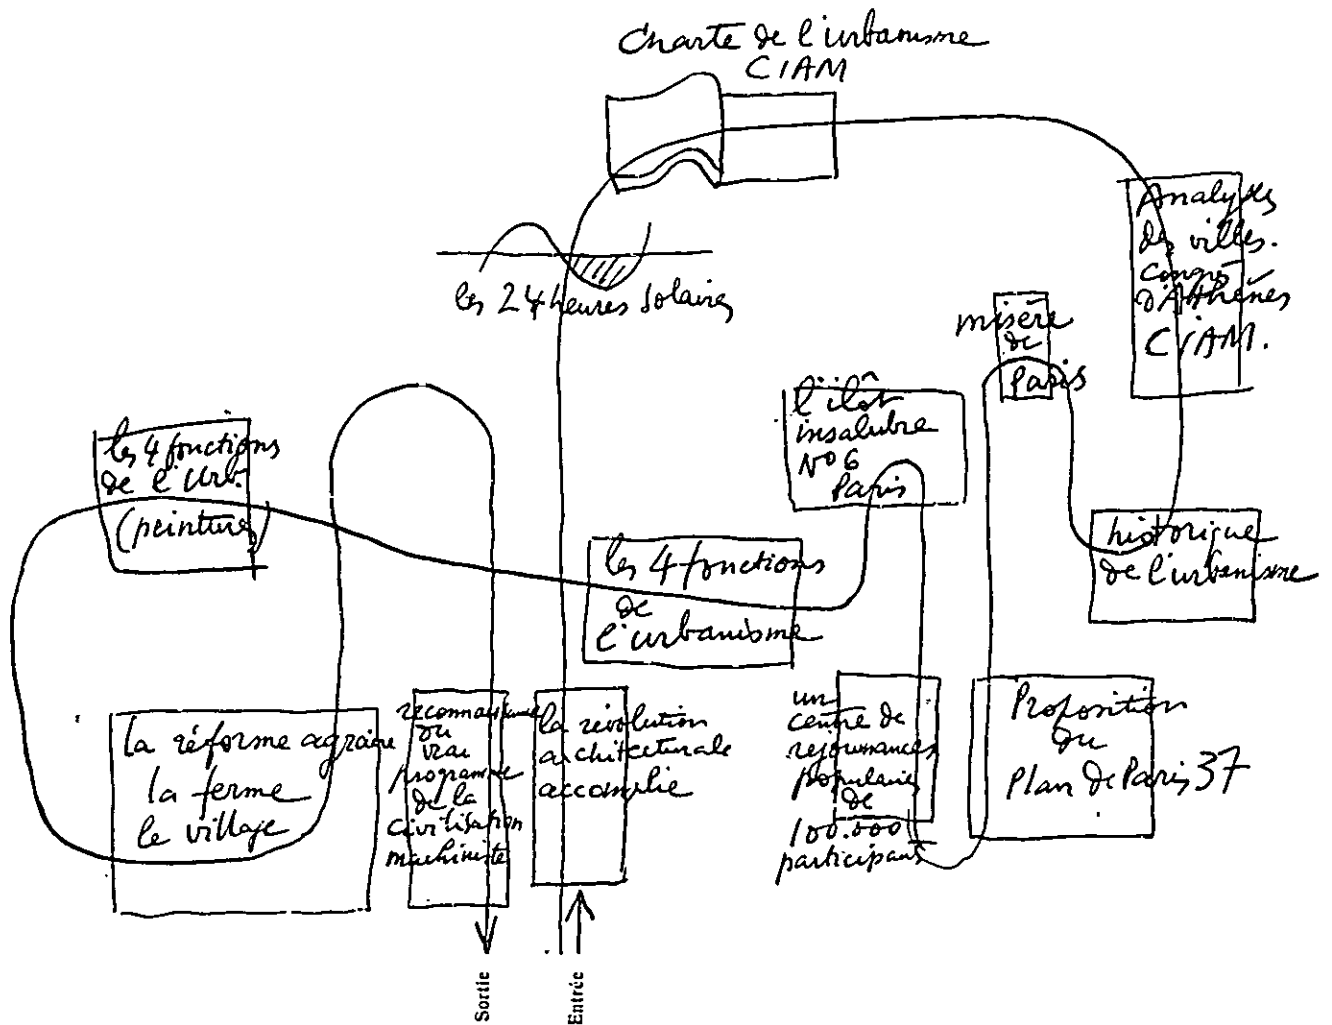 Charte de l'urbanisme
CIAM
les 24 heures solaires
Analyses
des villes.
congrès
d'Athènes
CIAM.
misère
de
Paris
l'ilôt
insalubre
No 6
Paris
les 4 fonctions
de l'Urb.
(peintures)
les 4 fonctions
de
l'urbanisme
historique
de l'urbanisme
la réforme agraire
la ferme
le village
reconnaissance
du
vrai
programme
de la
civilisation
machiniste
la révolution
architecturale
accomplie
un
centre de
rejouissances
populaires
de
100.000
participants
Proposition
du
Plan de Paris 37
Sortie
Entrée